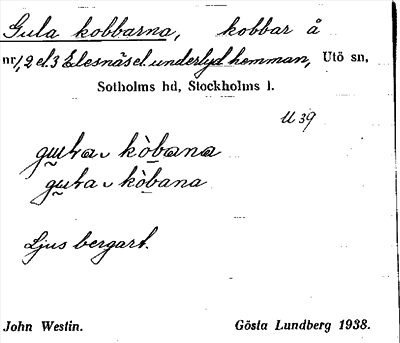 Gula kobbarna, kobbar å
nr 1, 2 el. 3 Elesnäs el. underlyd hemman, Utö sn,
Sotholms hd, Stockholms l.
U 39
kòbana
kòbana
Ljus bergart.
John Westin. Gösta Lundberg 1938.